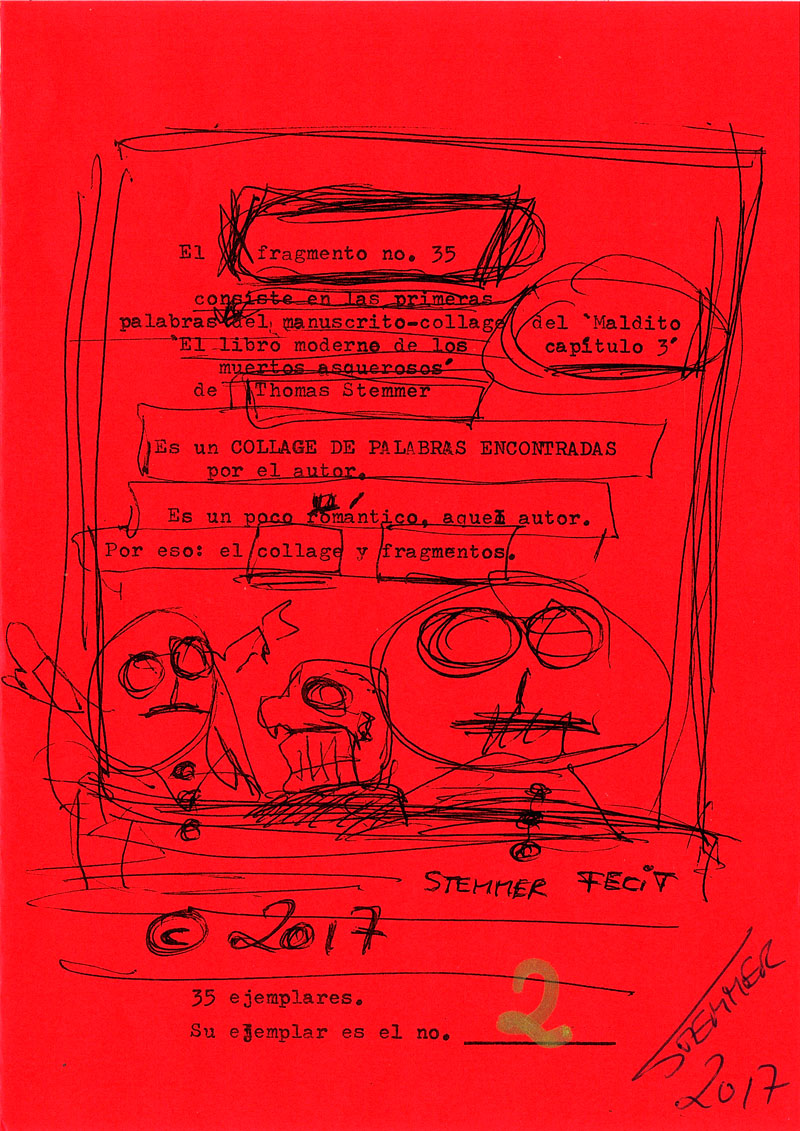 El fragmento no. 35
consiste en las primeras
palabras del manuscrito-collage del `Maldito
`El libro moderno de los capítulo 3´
muertos asquerosos´
de Thomas Stemmer
Es un COLLAGE DE PALABRAS ENCONTRADAS
por el autor.
Es un poco romántico, aquel autor.
Por eso: el collage y fragmentos.
STEMMER FECIT
© 2017
35 ejemplares.
Su ejemplar es el no. 2
STEMMER
2017